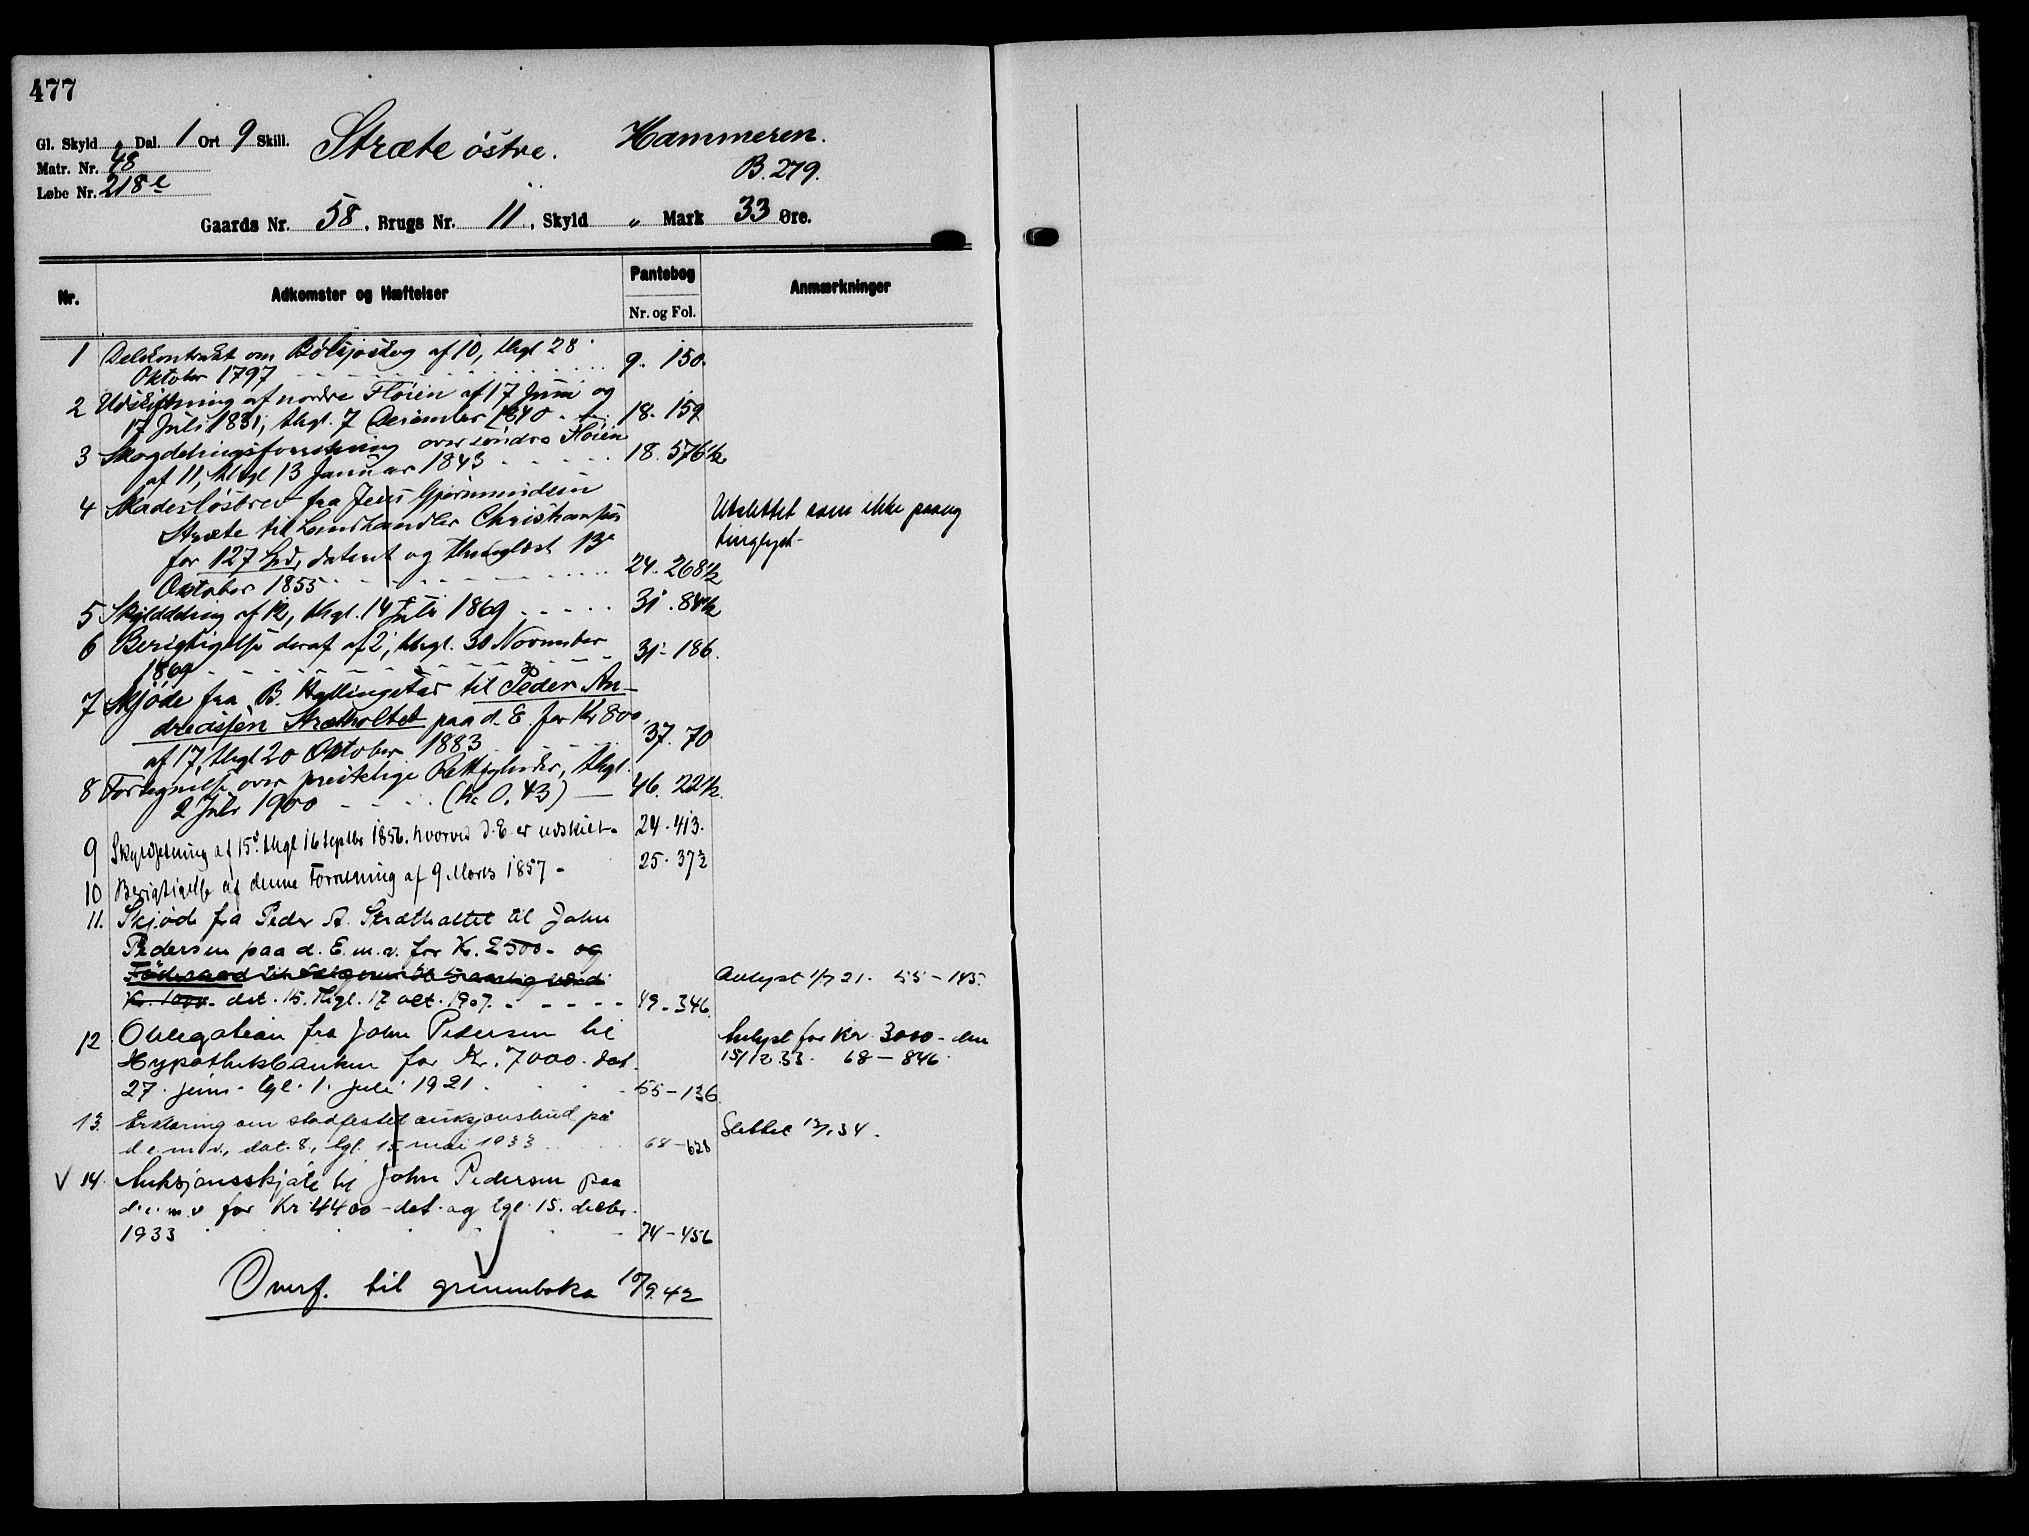 477
Gl. Skyld " Dal. 1 Ort 9 Skill. Stræte østre. Hammeren.
Matr. Nr. 48 B. 279.
Løbe Nr. 218 e
Gaards Nr. 58, Brugs Nr. 11, Skyld " Mark 33 Øre.
Nr. Adkomster og Hæftelser Pantebog Anmærkninger
Nr. og Fol.
1 Delekontrakt om Bølsjøskog af 10, thgl 28
Oktober 1797 9. 150.
2 Udskiftning af nordre Fløien af 17 Juni og
17 Juli 1831, thgl. 7 Desember 1840 18. 159
3 Skogdelingsforretning over søndre Fløien
af 11, thgl 13 Januar 1843 18. 576 1/2
4 Skadesløsbrev fra Jens Gjørmundsen Utslettet som ikke paany
Stræte til Landhandler Christiansen tinglyst.
for 127 Spd, dateret og thinglæst 13
Oktober 1855 24. 268 1/2
5 Skylddeling af 12, thgl. 14 Juli 1869 31. 84 1/2
6 Berigtigelse deraf af 2, thgl. 30 November
1869 31. 186.
7 Skjøde fra B. Hyllingstad til Peder An-
dreassen Strætholtet paa d. E. for Kr 800,
af 17, thgl 20 Oktober 1883 37. 70
8 Fortegnelse over presteliige Rettigheder, thgl.
2 Juli 1900 (Kr 0,43) 46. 22 1/2.
9 Skyldsetning af 15, thgl 16 Septbr 1856, hvorved d. E. er udskilt 24. 413.
10 Berigtigelse af denne Forretning af 9 Marts 1857 25. 37 2
11. Skjøde fra Peder A. Strætholtet til John
Pedersen paa d. E. m. v. for Kr. 2500 og
Føderaad til Sælgeren af 5 aarlig værdi Avlyst 1/7 21. 55 - 145.
Kr. 1000. dat. 15. thgl. 17 okt. 1907. 49 - 346.
12 Obligation fra John Pedersen til Avlyst for kr 3000 - den
Hypothekbanken for Kr. 7000. dat. 15/12 33. 68 - 846.
27. juni. tgl. 1. juli 1921. 55 - 136.
13. Erklæring om stadfestet auksjonsbud på Slettet 12/1 34.
d. e. m. v., dat. 8, tgl. 15 mai 1933 68 - 628
V 14. Auksjonsskjøte til John Pedersen paa
d. e. m. v for Kr 4400 - dat. og tgl. 15. decbr.
1933 74 - 456
Overf. til grunnboka 10/9.42